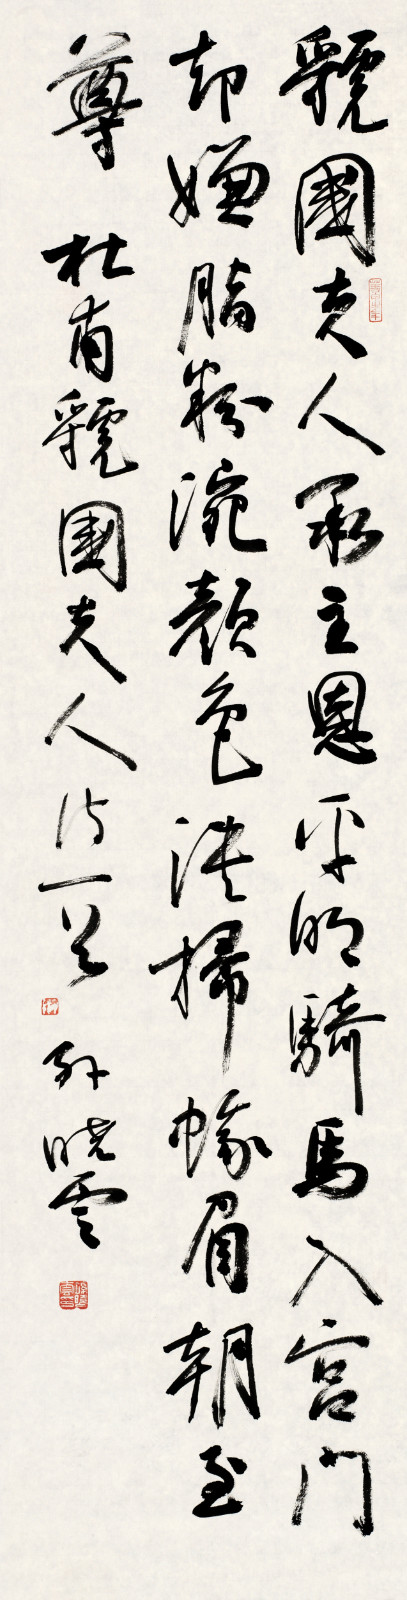 虢國夫人承主恩平明騎馬入宮門
却嫌脂粉涴顏色淡掃蛾眉朝至
尊 杜甫虢國夫人詩一首 孫曉雲